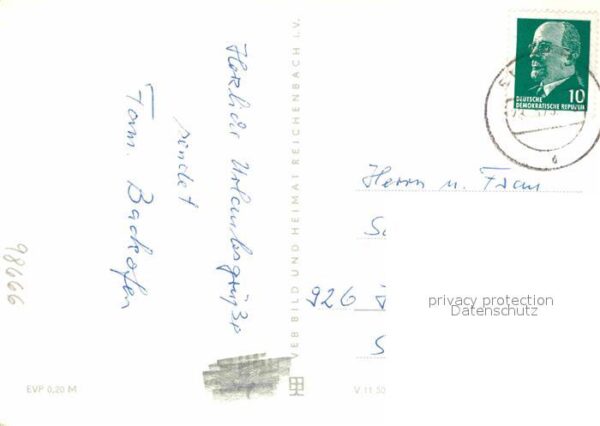 Herzliche Urlaubsgrüße
sendet
Fam. Backofen
98666
EVP 0,20 M
VEB BILD UND HEIMAT REICHENBACH I.V.
V 11 50
DEUTSCHE
DEMOKRATISCHE REPUBLIK
10
Herrn u. Frau
S
926
S
privacy protection
Datenschutz